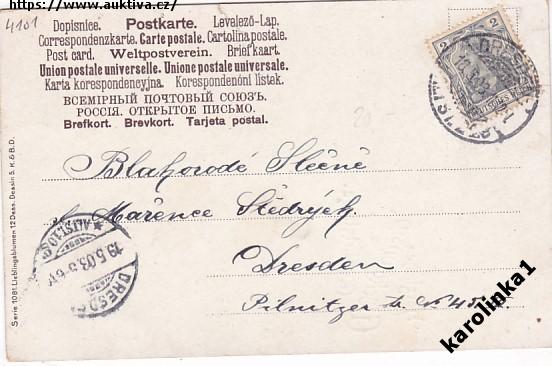 https://www.auktiva.cz/
4101
Dopisnice. Postkarte. Levelező-Lap.
Correspondenzkarte. Carte postale. Cartolina postale.
Post card. Weltpostverein. Brief kaart.
Union postale universelle. Unione postale universale.
Karta korespondencyjna. Korespondenční lístek.
ВСЕМІРНЫЙ ПОЧТОВЫЙ СОЮЗЪ.
РОССІЯ. ОТКРЫТОЕ ПИСЬМО.
Brefkort. Brevkort. Tarjeta postal.
2 2
DRES
ALTST. 10
19.5.03. 5-6
DRESD
Blahorodé Slečně
Mařence
Dresden
Pilnitzer
Serie 1081. Lieblingsblumen 12 Dess. Dessin 5. K. & B. D.
karolinka1